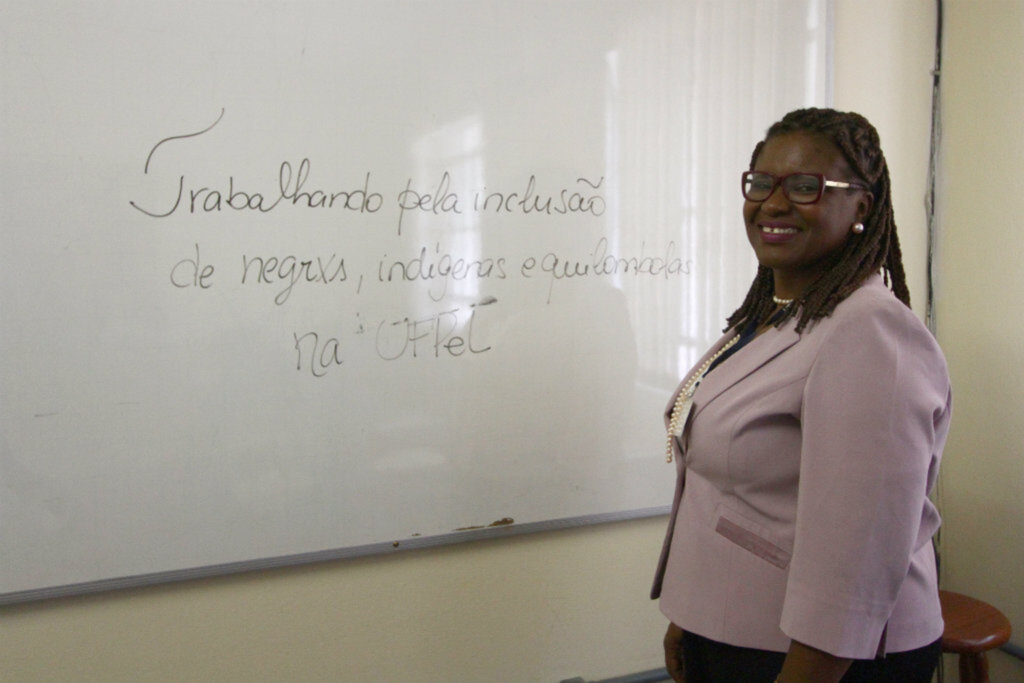 Trabalhando pela inclusão
de negrxs, indígenas e quilombolas
na UFPel